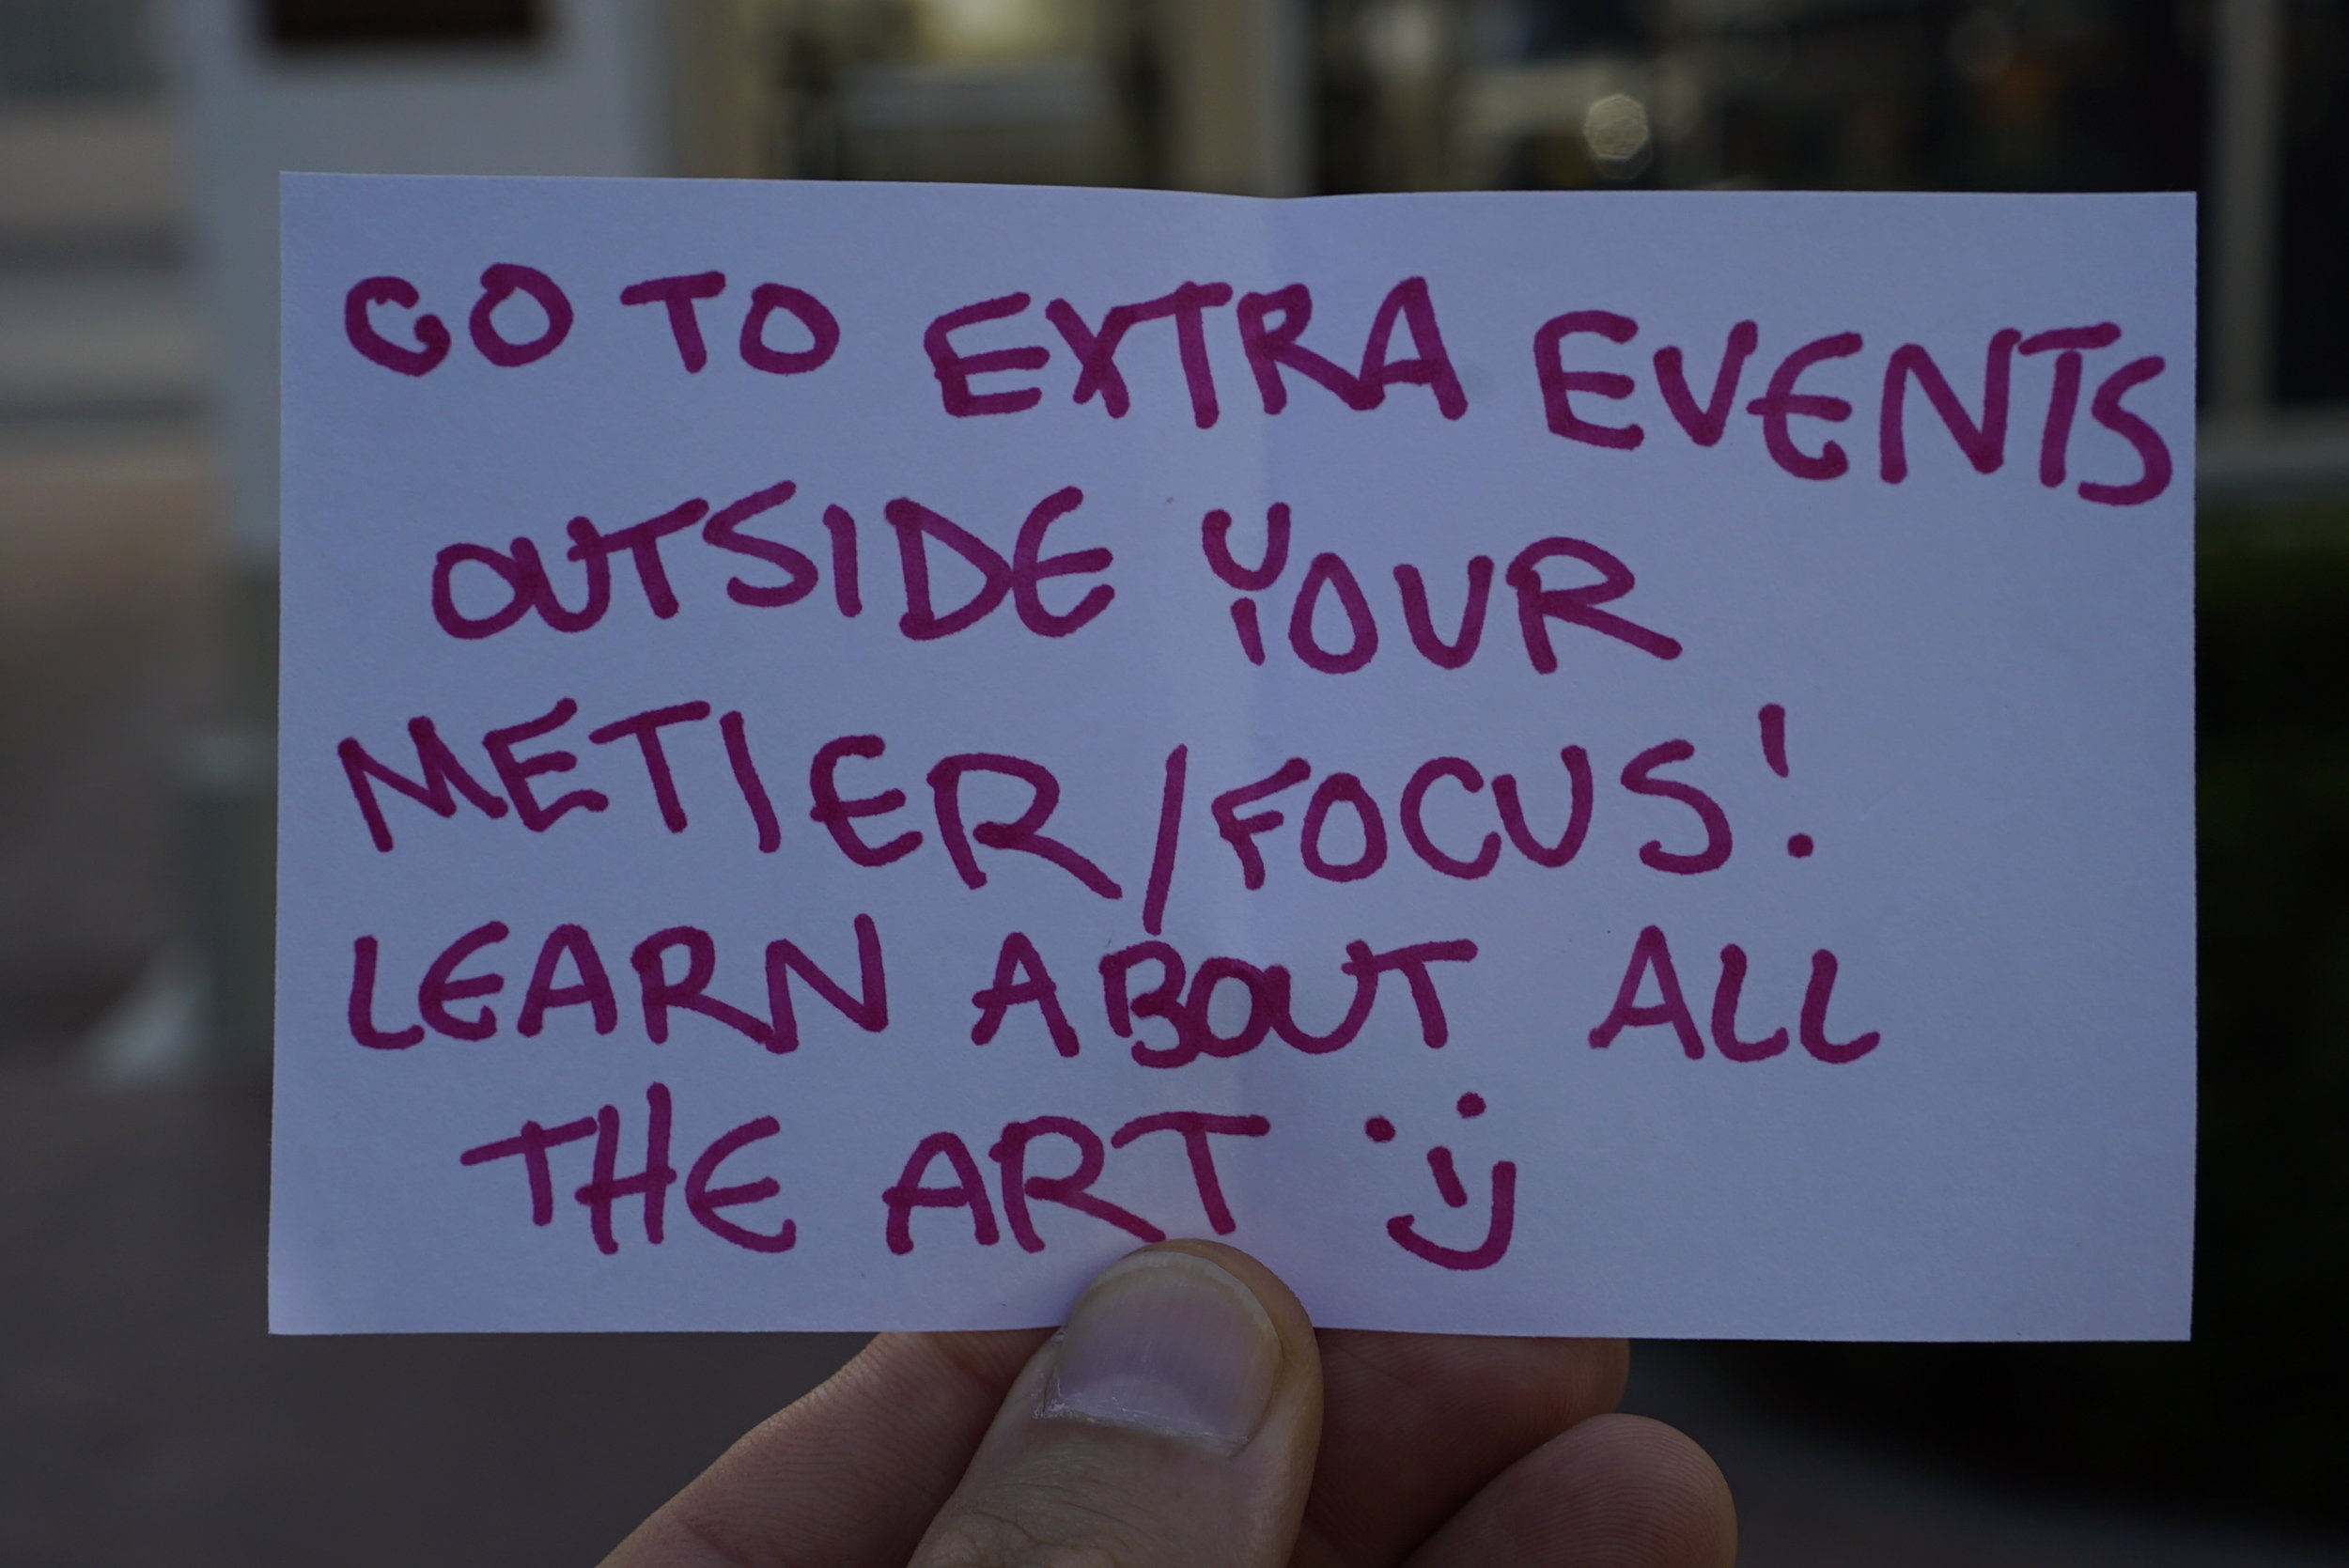 GO TO EXTRA EVENTS
OUTSIDE YOUR
METIER/FOCUS!
LEARN ABOUT ALL
THE ART